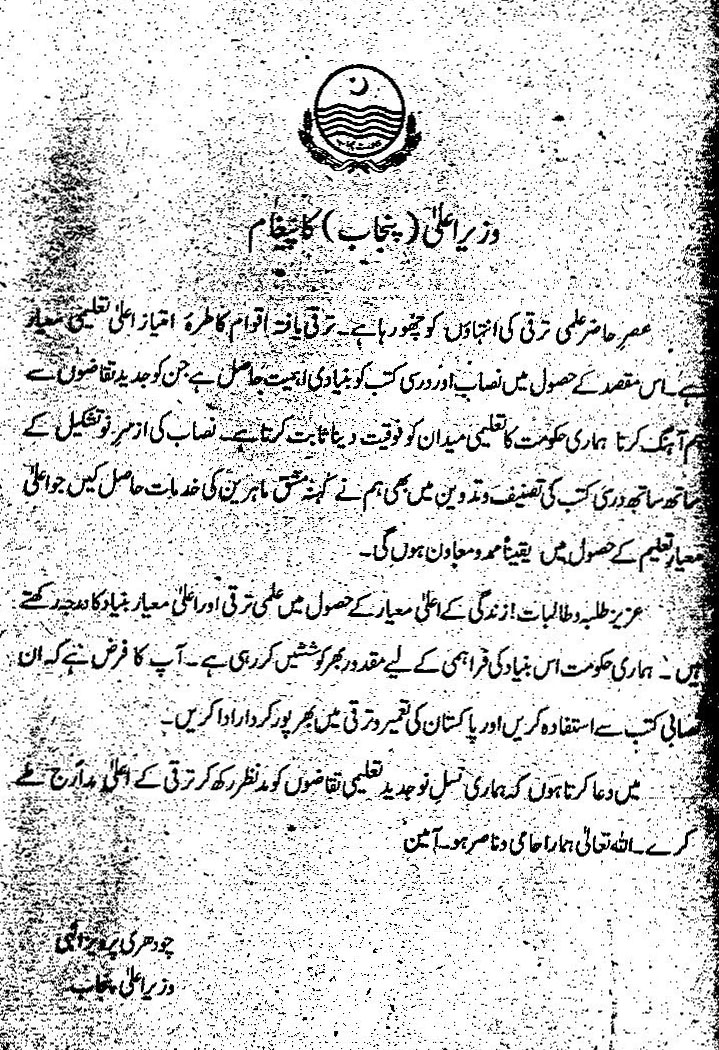 وزیر اعلیٰ (پنجاب) کا پیغام
عصرِ حاضر علمی ترقی کی انتہاؤں کو چھو رہا ہے۔ ترقی یافتہ اقوام کا طرۂ امتیاز اعلیٰ تعلیمی معیار
ہے۔ اس مقصد کے حصول میں نصاب اور درسی کتب کو بنیادی اہمیت حاصل ہے جن کو جدید تقاضوں سے
ہم آہنگ کرنا ہماری حکومت کا تعلیمی میدان کو فوقیت دینا ثابت کرتا ہے۔ نصاب کی ازسرِنو تشکیل کے
ساتھ ساتھ درسی کتب کی تصنیف و تدوین میں بھی ہم نے کہنہ مشق ماہرین کی خدمات حاصل کیں جو اعلیٰ
معیارِ تعلیم کے حصول میں یقیناً ممد و معاون ہوں گی۔
عزیز طلبہ و طالبات! زندگی کے اعلیٰ معیار کے حصول میں علمی ترقی اور اعلیٰ معیار بنیاد کا درجہ رکھتے
ہیں۔ ہماری حکومت اس بنیاد کی فراہمی کے لیے مقدور بھر کوششیں کر رہی ہے۔ آپ کا فرض ہے کہ ان
نصابی کتب سے استفادہ کریں اور پاکستان کی تعمیر و ترقی میں بھرپور کردار ادا کریں۔
میں دعا کرتا ہوں کہ ہماری نسلِ نو جدید تعلیمی تقاضوں کو مدنظر رکھ کر ترقی کے اعلیٰ مدارج طے
کرے۔ اللہ تعالیٰ ہمارا حامی و ناصر ہو۔ آمین
چودھری پرویز الٰہی
وزیر اعلیٰ پنجاب